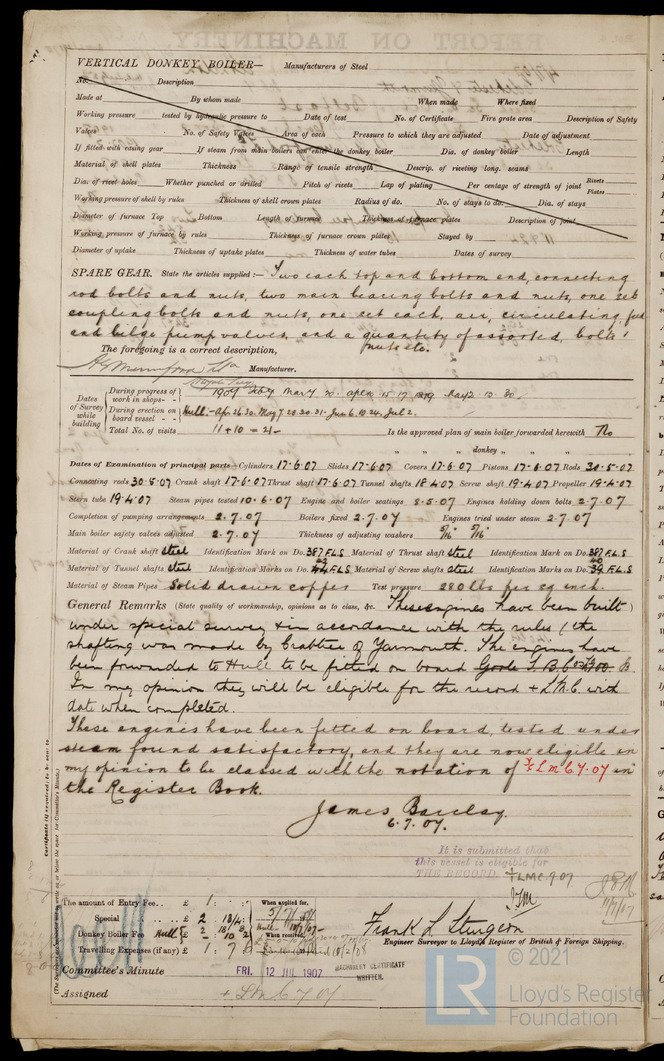 VERTICAL DONKEY BOILER— Manufacturers of Steel
No. Description
Made at By whom made When made Where fixed
Working pressure tested by hydraulic pressure to Date of test No. of Certificate Fire grate area Description of Safety
Valves No. of Safety Valves Area of each Pressure to which they are adjusted Date of adjustment
If fitted with easing gear If steam from main boilers can enter the donkey boiler Dia. of donkey boiler Length
Material of shell plates Thickness Range of tensile strength Descrip. of riveting long. seams
Dia. of rivet holes Whether punched or drilled Pitch of rivets Lap of plating Per centage of strength of joint Rivets Plates
Working pressure of shell by rules Thickness of shell crown plates Radius of do. No. of stays to do. Dia. of stays
Diameter of furnace Top Bottom Length of furnace Thickness of furnace plates Description of joint
Working pressure of furnace by rules Thickness of furnace crown plates Stayed by
Diameter of uptake Thickness of uptake plates Thickness of water tubes Dates of survey
SPARE GEAR. State the articles supplied:— Two each top and bottom end, connecting
rod bolts and nuts, two main bearing bolts and nuts, one set
coupling bolts and nuts, one set each, air, circulating, feed
and bilge pump valves, and a quantity of assorted, bolts &
nuts etc.
The foregoing is a correct description,
Manufacturer.
Dates of Survey while building
During progress of work in shops- - 1907
During erection on board vessel - - Hull:- Ap. 26. 30. May 7. 28. 30. 31. Jun 6. 10. 24. Jul 2.
Total No. of visits 11 + 10 = 21 Is the approved plan of main boiler forwarded herewith No
" " " donkey " " "
Dates of Examination of principal parts—Cylinders 17.6.07 Slides 17.6.07 Covers 17.6.07 Pistons 17.6.07 Rods 30.5.07
Connecting rods 30.5.07 Crank shaft 17.6.07 Thrust shaft 17.6.07 Tunnel shafts 18.4.07 Screw shaft 19.4.07 Propeller 19.4.07
Stern tube 19.4.07 Steam pipes tested 10.6.07 Engine and boiler seatings 8.5.07 Engines holding down bolts 2.7.07
Completion of pumping arrangements 2.7.07 Boilers fixed 2.7.07 Engines tried under steam 2.7.07
Main boiler safety valves adjusted 2.7.07 Thickness of adjusting washers 5/16" 5/16"
Material of Crank shaft steel Identification Mark on Do. 387 F.L.S Material of Thrust shaft steel Identification Mark on Do. 387 F.L.S
Material of Tunnel shafts steel Identification Marks on Do. F.L.S Material of Screw shafts steel Identification Marks on Do. F.L.S
Material of Steam Pipes Solid drawn copper Test pressure 280 lbs per sq inch.
General Remarks (State quality of workmanship, opinions as to class, &c. These engines have been built)
under special survey & in accordance with the rules / the
shafting was made by Crabtree of Yarmouth. The engines have
been forwarded to Hull to be fitted on board Goole S. B. Co
In my opinion they will be eligible for the record + L.M.C with
date when completed.
These engines have been fitted on board, tested under
steam found satisfactory, and they are now eligible in
my opinion to be classed with the notation of + L M C 7.07 in
the Register Book.
James Barclay.
6.7.07.
It is submitted that
this vessel is eligible for
THE RECORD. + LMC 7.07
11/7/07
Certificate (if required) to be sent to
The amount of Entry Fee.. £ 1 : : When applied for,
Special .. .. £ 2 : 18/4: 5/7/07
Donkey Boiler Fee Hull £ 2 When received,
Travelling Expenses (if any) £ 1 : 7
Frank L. Sturgeon
Engineer Surveyor to Lloyd's Register of British & Foreign Shipping.
Committee's Minute FRI. 12 JUL 1907 MACHINERY CERTIFICATE WRITTEN.
Assigned + L M C 7 07
LR © 2021
Lloyd's Register
Foundation